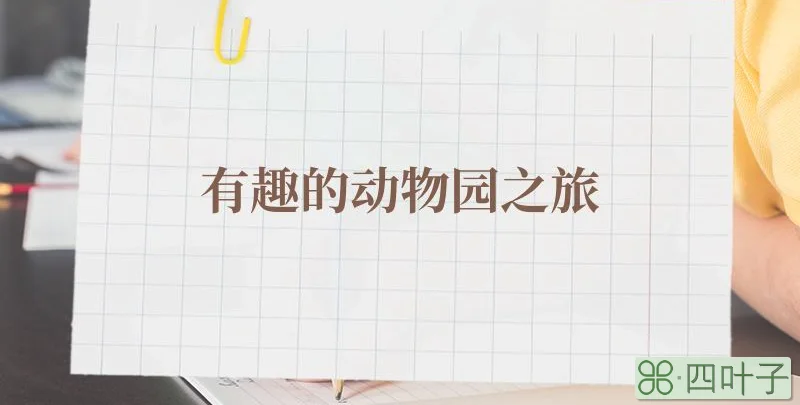 有趣的动物园之旅
四叶子